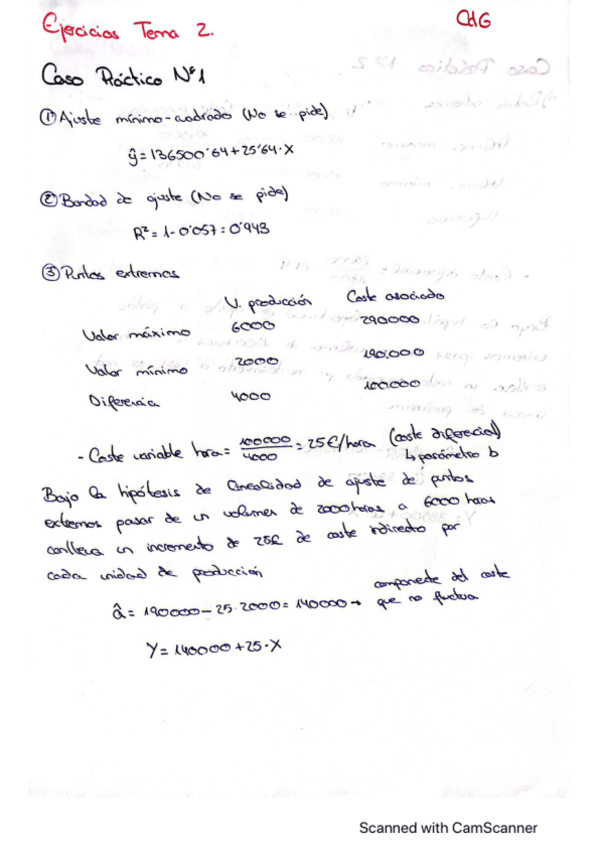 Ejercicios Tema 2. CdG
Caso Práctico Nº1
① Ajuste mínimo-cuadrado (No se pide)
ŷ = 136500'64 + 25'64·X
② Bondad de ajuste (No se pide)
R² = 1 - 0'057 = 0'943
③ Puntos extremos
V. producción Coste asociado
Valor máximo 6000 290000
Valor mínimo 2000 190.000
Diferencia 4000 100.000
- Coste variable hora = 100000/4000 = 25€/hora (coste diferencial)
↳ parámetro b
Bajo la hipótesis de linealidad de ajuste de puntos
extremos pasar de un volumen de 2000 horas a 6000 horas
conlleva un incremento de 25€ de coste indirecto por
cada unidad de producción
â = 190000 - 25·2000 = 140000 → componente del coste
que no fluctua
Y = 140000 + 25·X
Scanned with CamScanner